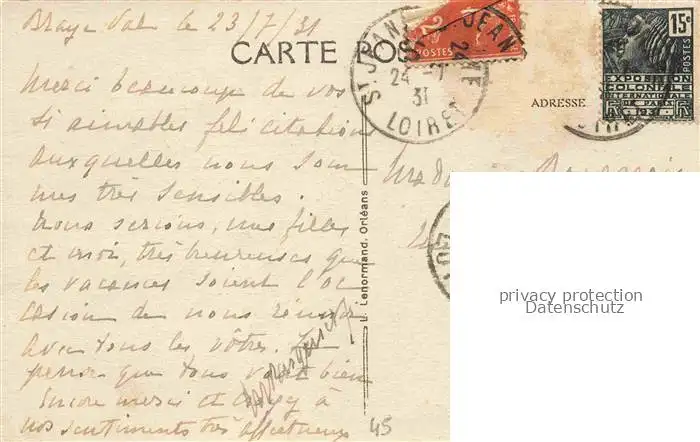 Braye Val le 23/7/31
CARTE POS
Merci beaucoup de vos
si aimables félicitations
auxquelles nous som
mes très sensibles.
Nous serions, mes filles
et moi, très heureuses que
les vacances soient l'oc
casion de nous réunir
avec tous les vôtres. Je
pense que tous vont bien
Encore merci et croyez à
nos sentiments très affectueux
45
L. Lenormand, Orléans
2c
POSTES
ST JEAN
24
31
LOIRET
ADRESSE
15c
POSTES
EXPOSITION
COLONIALE
INTERNATIONALE
DE PARIS
1931
privacy protection
Datenschutz